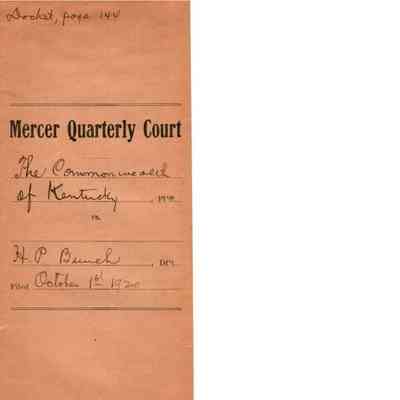 Docket, page 144
Mercer Quarterly Court
The Commonwealth
of Kentucky, PTFF.
vs.
H. P. Bunch, DEFT.
Filed October 1st 1920